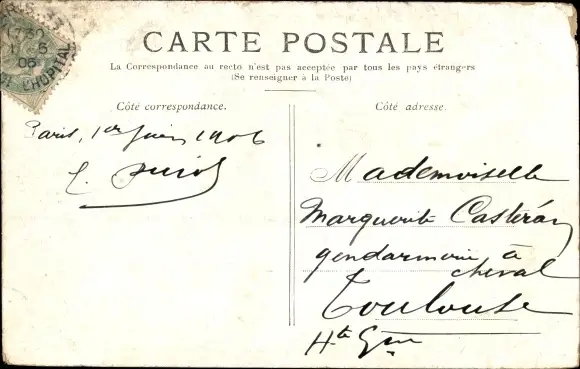 CARTE POSTALE
La Correspondance au recto n'est pas acceptée par tous les pays étrangers
(Se renseigner à la Poste)
Côté correspondance.
Côté adresse.
Paris, 1er Juin 1906
Mademoiselle
Marguerite Castéran
gendarmerie à
cheval
Toulouse
Hte Gne
L'HOPITAL